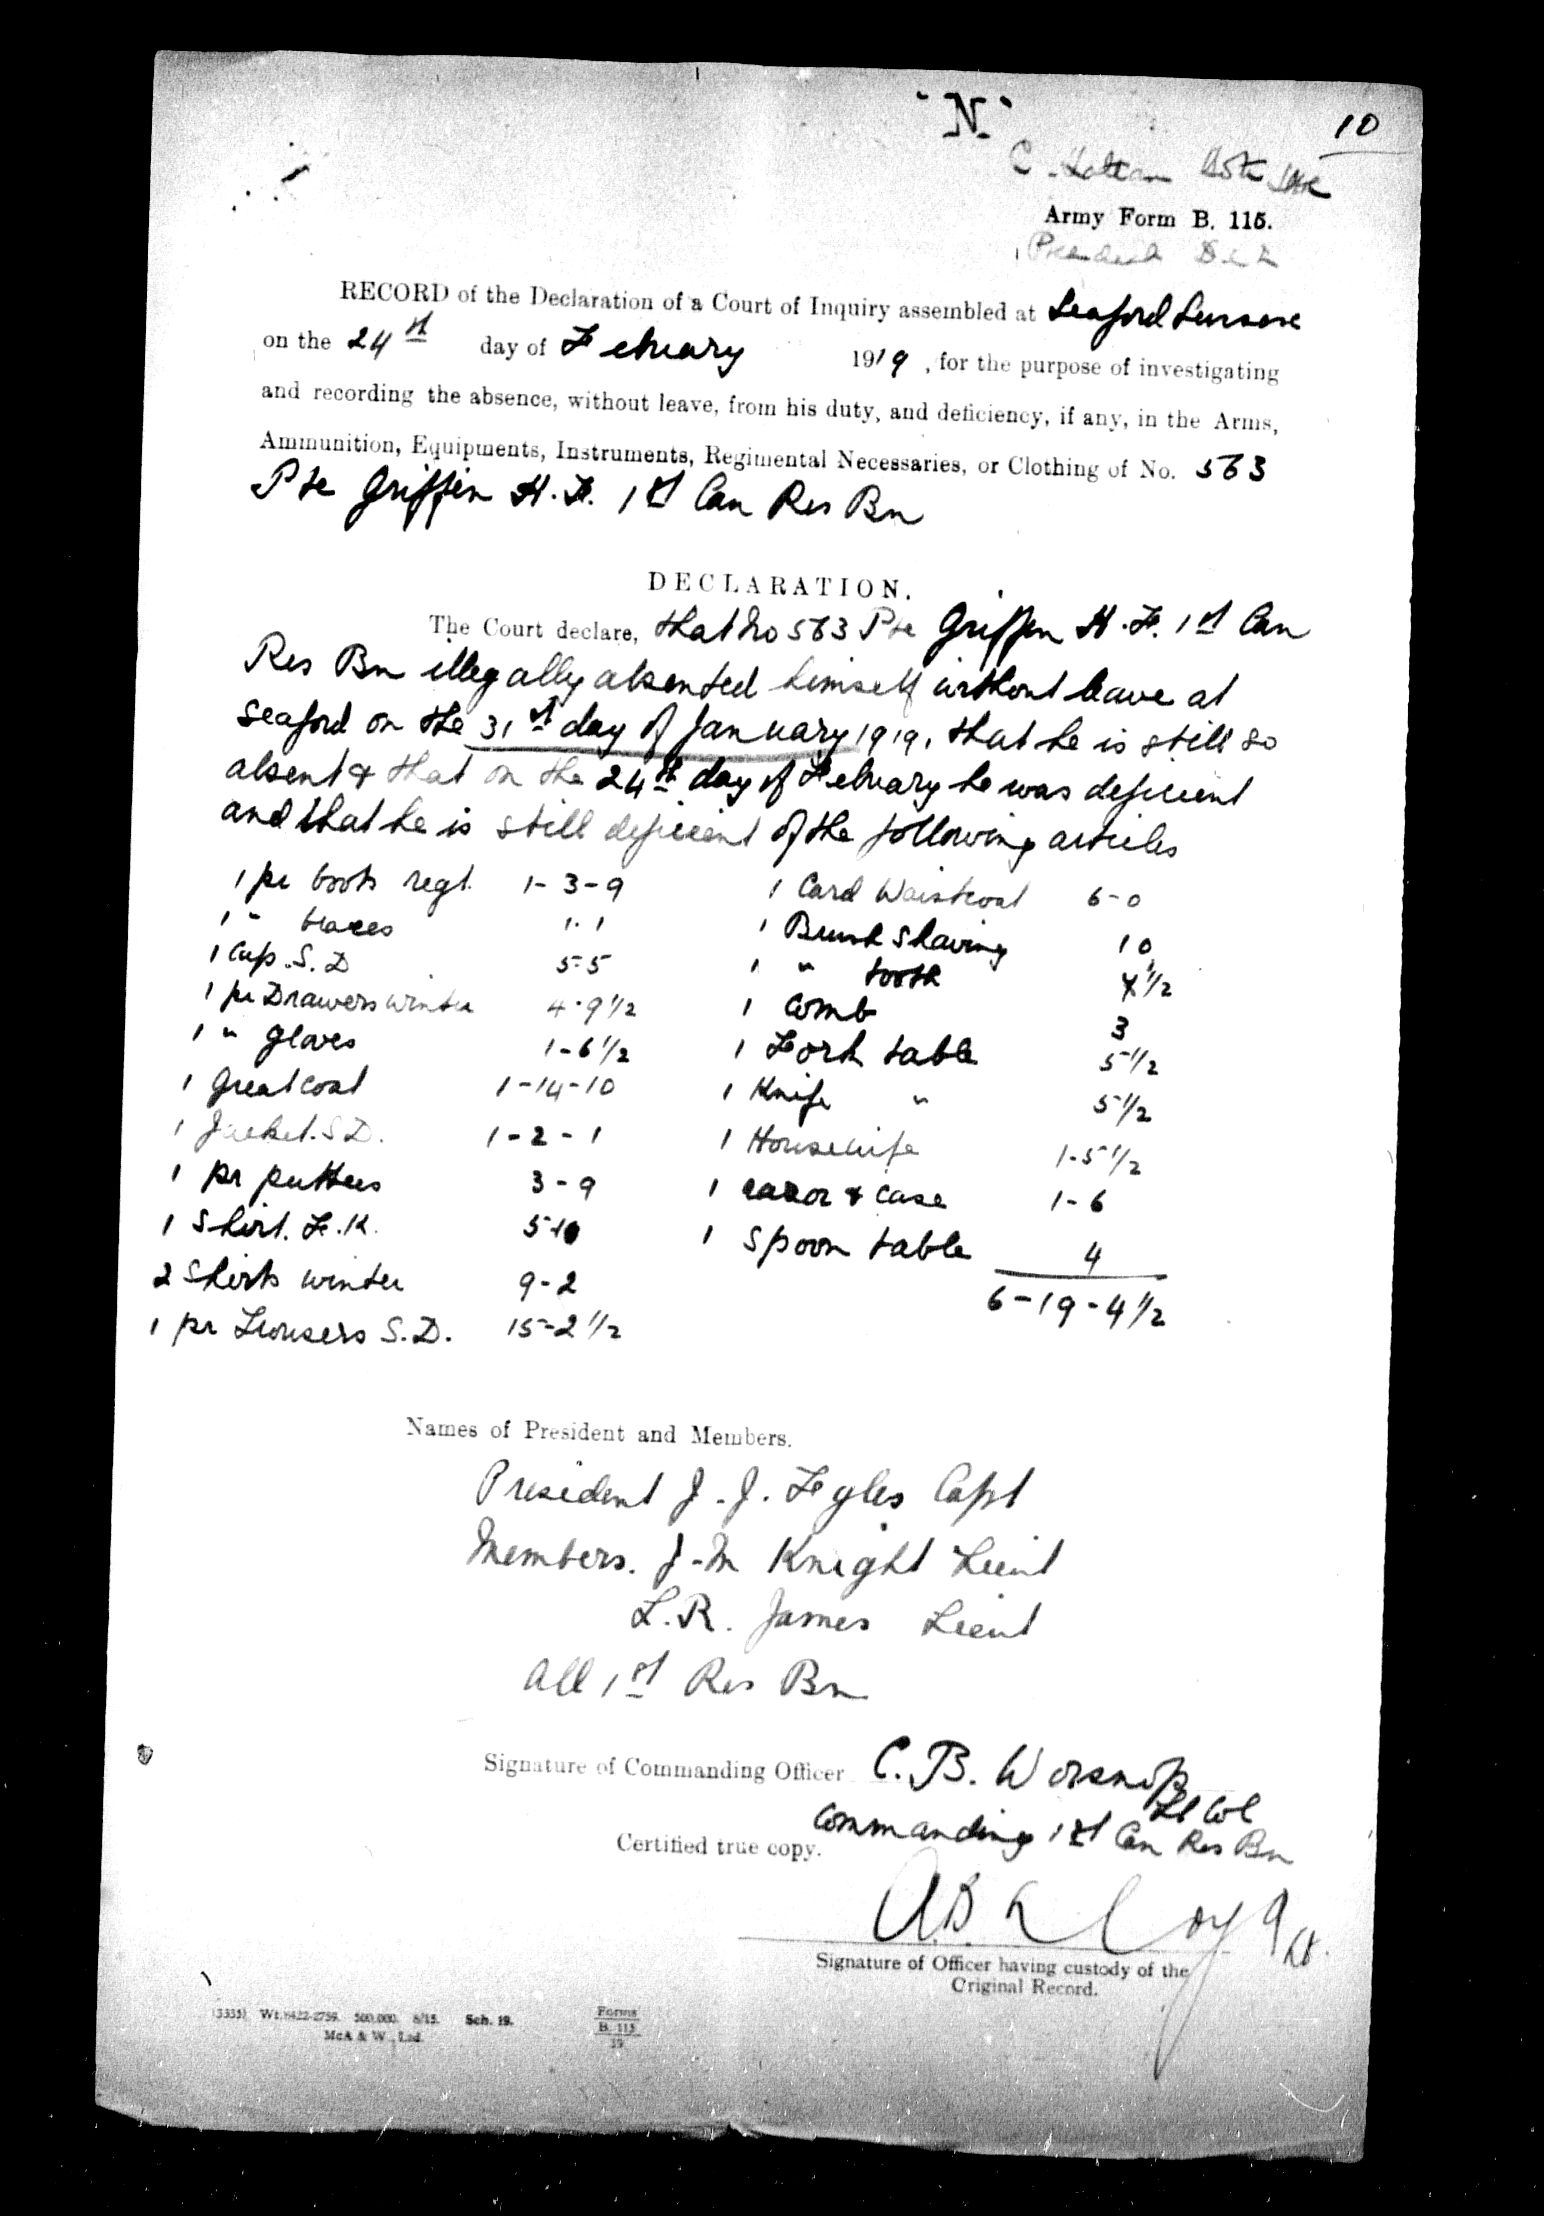 "N"
10
Army Form B. 115.
RECORD of the Declaration of a Court of Inquiry assembled at Seaford
on the 24th day of Febuary 1919, for the purpose of investigating
and recording the absence, without leave, from his duty, and deficiency, if any, in the Arms,
Ammunition, Equipments, Instruments, Regimental Necessaries, or Clothing of No. 563
Pte Griffin H.F. 1st Can Res Bn
DECLARATION.
The Court declare, that No 563 Pte Griffin H.F. 1st Can
Res Bn illegally absented himself without leave at
Seaford on the 31st day of January 1919, that he is still so
absent & that on the 24th day of Febuary he was deficient
and that he is still deficient of the following articles
1 pr boots regt. 1-3-9 1 Card Waistcoat 6-0
1 " braces 1.1 1 Brush Shaving 10
1 Cap. S.D 5-5 1 " tooth 4 1/2
1 pr Drawers winter 4-9 1/2 1 Comb 3
1 " gloves 1-6 1/2 1 Fork table 5 1/2
1 Great coat 1-14-10 1 Knife " 5 1/2
1 Jacket. S.D. 1-2-1 1 Housewife 1-5 1/2
1 pr puttees 3-9 1 razor & case 1-6
1 Shirt. F.K. 1 Spoon table 4
2 Shirts winter 9-2 6-19-4 1/2
1 pr Trousers S.D. 15-2 1/2
Names of President and Members.
President J.J. Fyles Capt
Members. J.M Knight Lieut
L.R. James Lieut
All 1st Res Bn
Signature of Commanding Officer C.B. Worsnop
Lt Col
Commanding 1st Can Res Bn
Certified true copy.
Signature of Officer having custody of the
Original Record.
500,000. 8/15. Sch. 19.
McA & W., Ltd.
Forms
B. 115